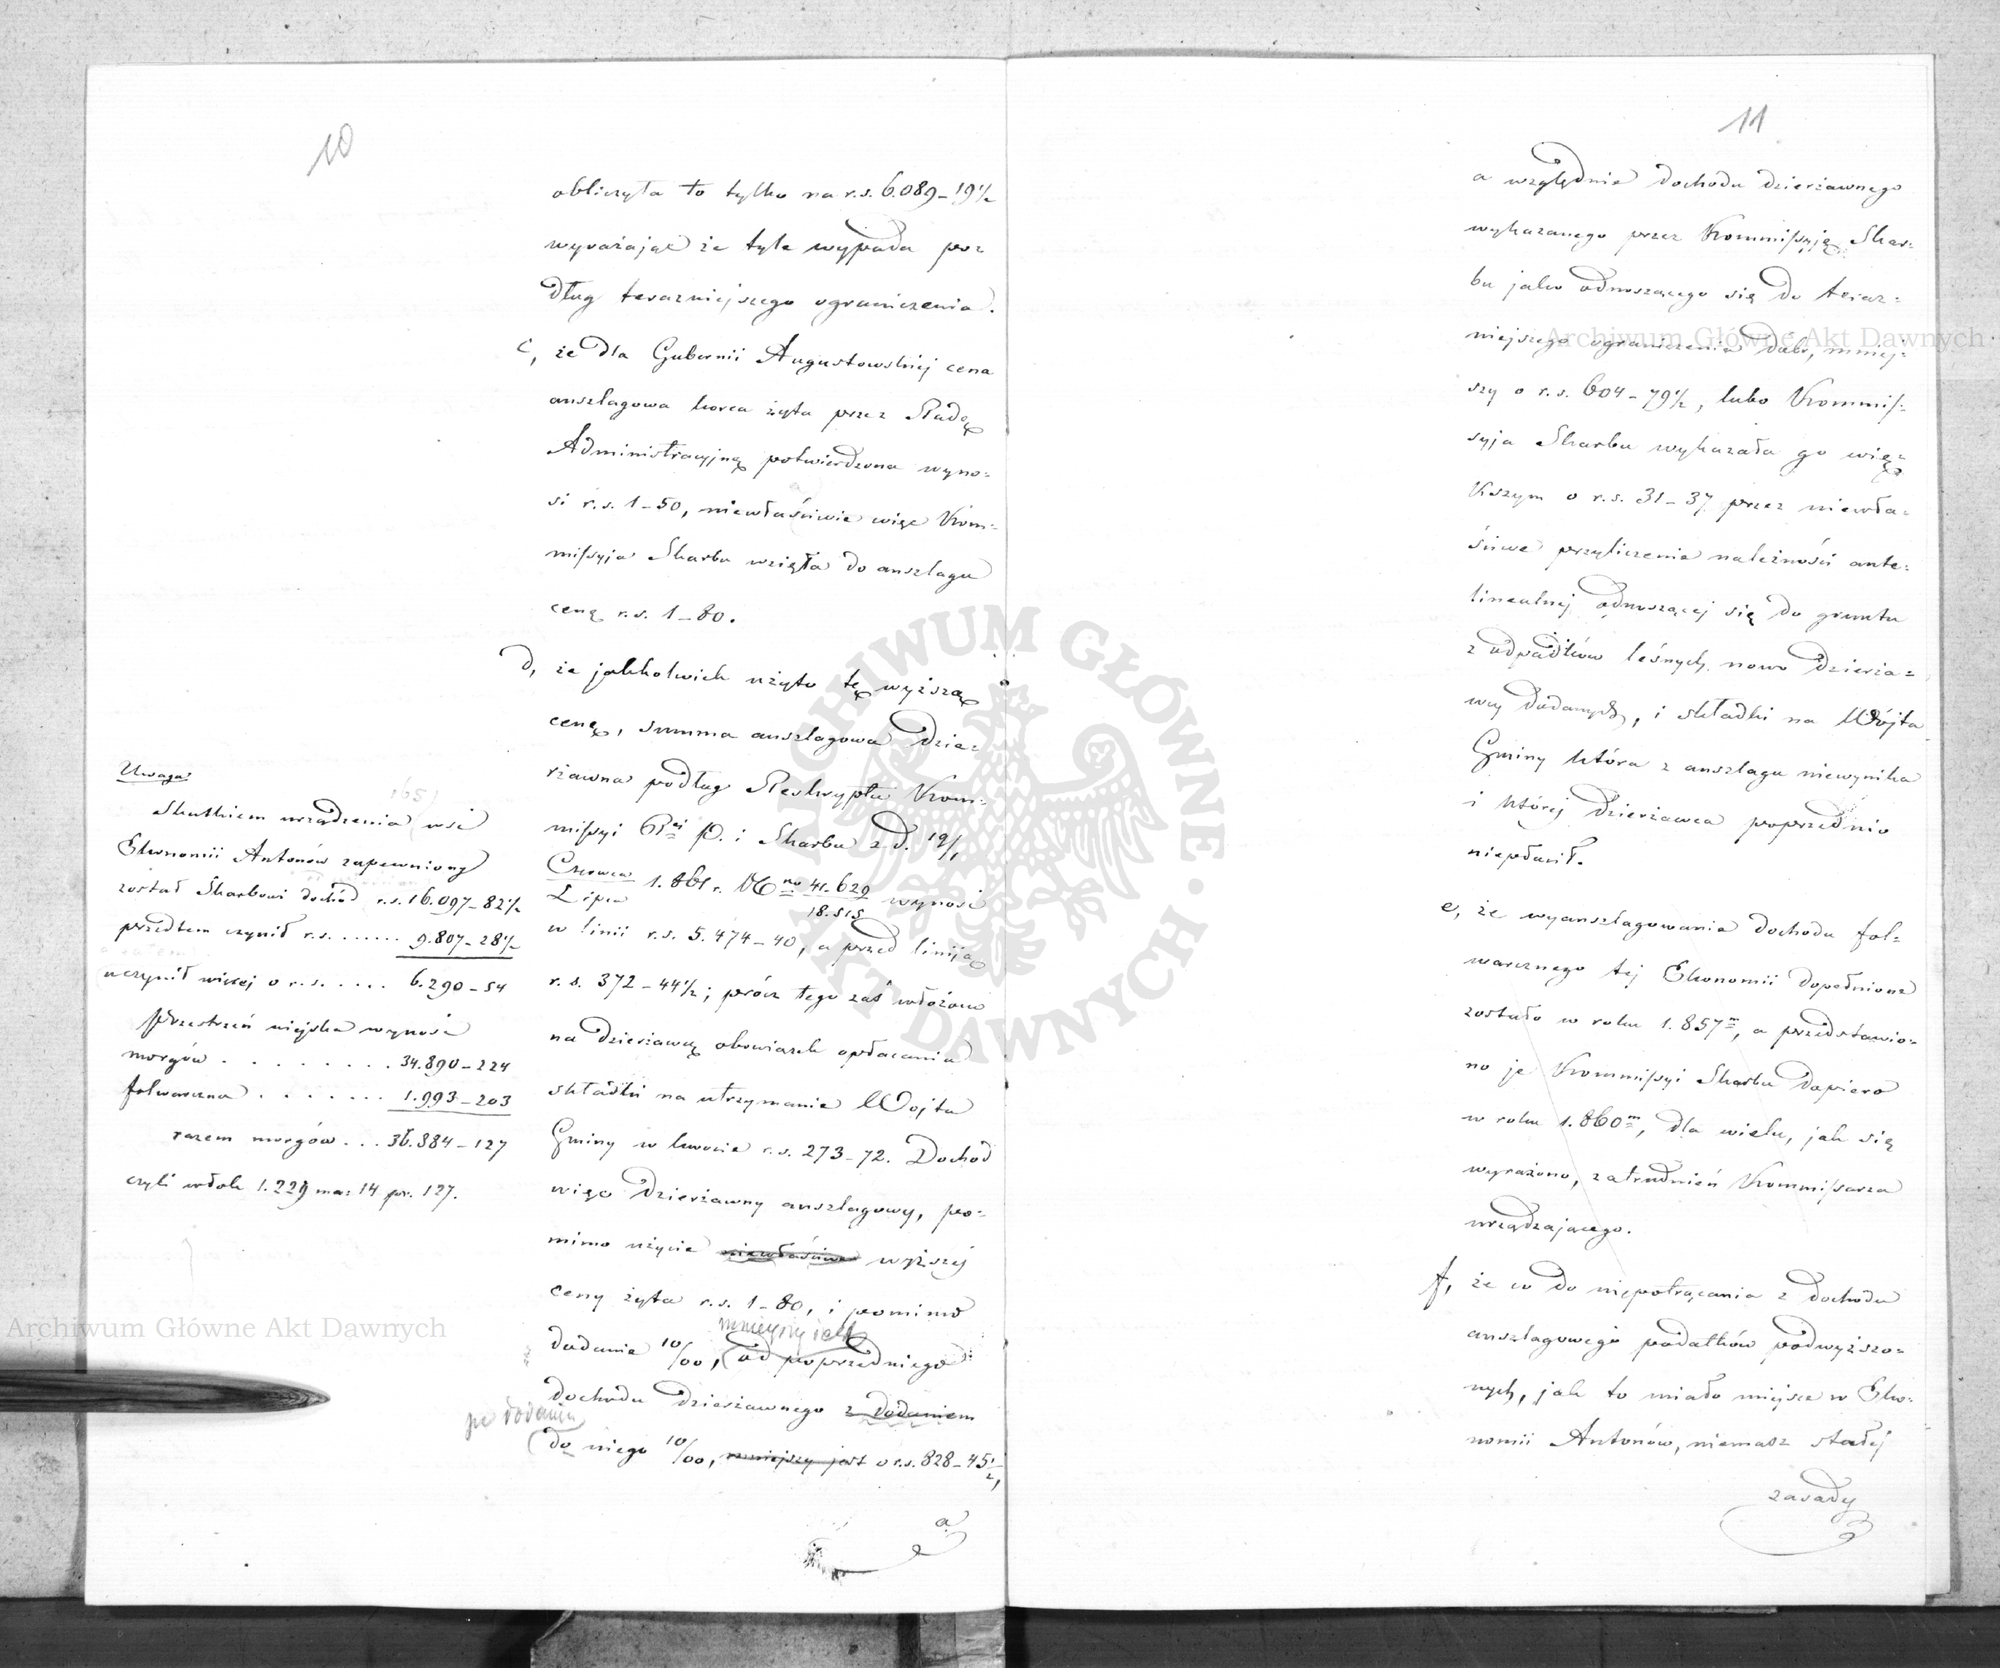 10
obliczyła to tylko na r.s. 6.089–19½
wyrażając że tyle wypada po=
dług teraźniejszego ograniczenia.
c, że dla Gubernii Augustowskiej cena
anszlagowa korca żyta przez Radę
Administracyjną potwierdzona wyno=
si r.s. 1–50, niewłaściwie więc Kom=
missyja Skarbu wzięła do anszlagu
cenę r.s. 1–80.
d, że jakkolwiek użyto tę wyższą
cenę, summa anszlagowa dzie=
rżawna podług Reskryptu Kom=
missyi R. P. i Skarbu z d. 19/1
Czerwca
Lipca 1.861 r. No 41.629
18.515 wynosi
w linii r.s. 5.474–40, a przed liniją
r.s. 372–44½; prócz tego zaś włożono
na dzierżawcę obowiązek opłacania
składki na utrzymanie Wójta
Gminy w kwocie r.s. 273–72. Dochód
więc dzierżawny anszlagowy, po=
mimo użycia niewłaściwie wyższej
ceny żyta r.s. 1–80, i pomimo
mniejszy jest
dodania 10/00, od poprzedniego
dochodu dzierżawnego z dodaniem
po dodaniu
do niego 10/00, mniejszy jest o r.s. 828–45½,
a
Uwaga
Skutkiem urządzenia wsi
Ekonomii Antonów zapewniony
został Skarbowi dochód r.s. 16.097–82½
przedtem czynił r.s. ...... 9.807–28½
uczynił więcej o r.s. ..... 6.290–54
Przestrzeń wiejska wynosi
morgów . . . . . . . . 34.890–224
folwarczna . . . . . . . 1.993–203
razem morgów . . . 36.884–127
czyli włók 1.229 mo: 14 pr. 127.
11
a względnie dochodu dzierżawnego
wykazanego przez Kommissyję Skar=
bu jako odnoszącego się do teraź=
niejszego ograniczenia dóbr, mniej=
szy o r.s. 604–79½, lubo Kommis=
syja Skarbu wykazała go wię=
kszym o r.s. 31–37 przez niewła=
ściwe przyliczenie należności ante=
linealnej odnoszącej się do gruntu
z odpadków leśnych nowo dzierża=
wy dodanych, i składki na Wójta
Gminy która z anszlagu niewynika
i której dzierżawca poprzednio
niepłacił.
e, że wyanszlagowanie dochodu fol=
warcznego tej Ekonomii dopełnione
zostało w roku 1.857m, a przedstawio=
no je Kommissyi Skarbu dopiero
w roku 1.860m, dla wielu, jak się
wyrażono, zatrudnień Kommissarza
urządzającego.
f, że co do niepotrącania z dochodu
anszlagowego podatków podwyższo=
nych, jak to miało miejsce w Eko=
nomii Antonów, niemasz stałej
zasady
Archiwum Główne Akt Dawnych
Archiwum Główne Akt Dawnych
ARCHIWUM GŁÓWNE
AKT DAWNYCH